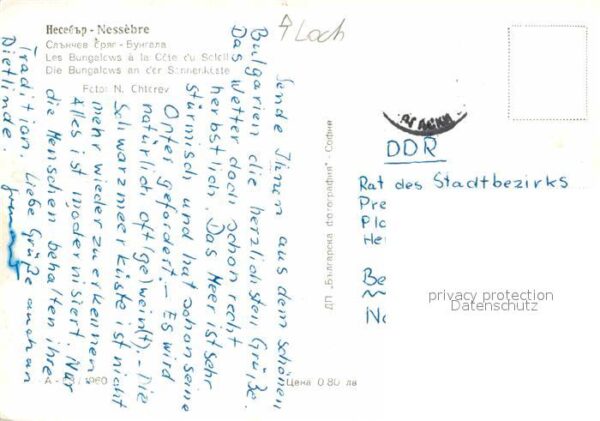 Несебър - Nessèbre
Слънчев бряг - Бунгала
Les Bungalows à la Côte du Soleil
Die Bungalows an der Sonnenküste
Foto: N. Chterev
Loch
Sende Ihnen aus dem schönen
Bulgarien die herzlichsten Grüße.
Das Wetter doch schon recht
herbstlich. Das Meer ist sehr
stürmisch und hat schon seine
Opfer gefordert. - Es wird
natürlich oft (ge)wein(t). - Die
Schwarzmeerküste ist nicht
mehr wieder zu erkennen.
Alles ist modernisiert. Nur
die Menschen behalten ihre
Tradition. Liebe Grüße auch an
Dietlinde.
ДП „Българска фотография" - София
А
1960
Цена 0.80 лв
DDR
Rat des Stadtbezirks
Pre
Pla
He
Be
No
privacy protection
Datenschutz